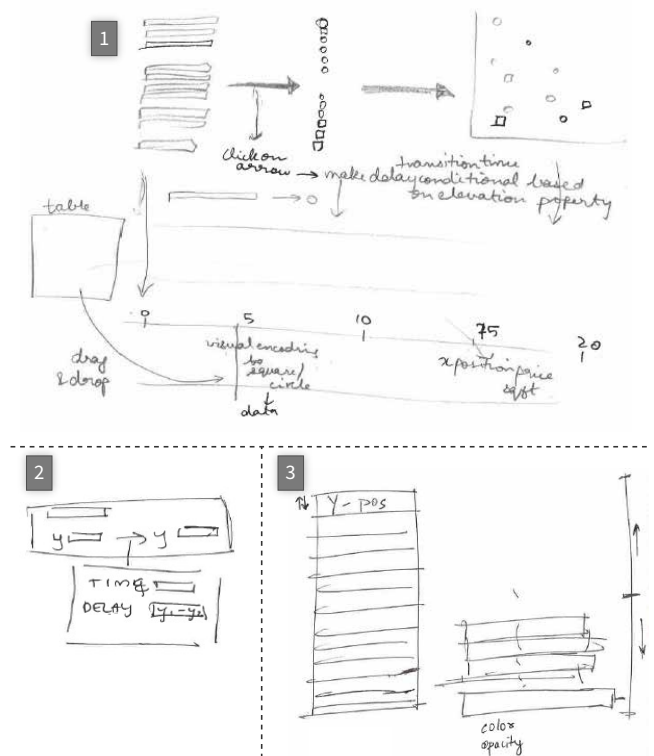 1
click on
arrow → make delay conditional based
transition time
on elevation poperty
table
0 5 10 75 20
drag
& drop
visual encoding
to
square/
circle
data
x position price
sqft
2
y → y
TIME
DELAY |y₁-y₂|
3
Y-pos
color
opacity